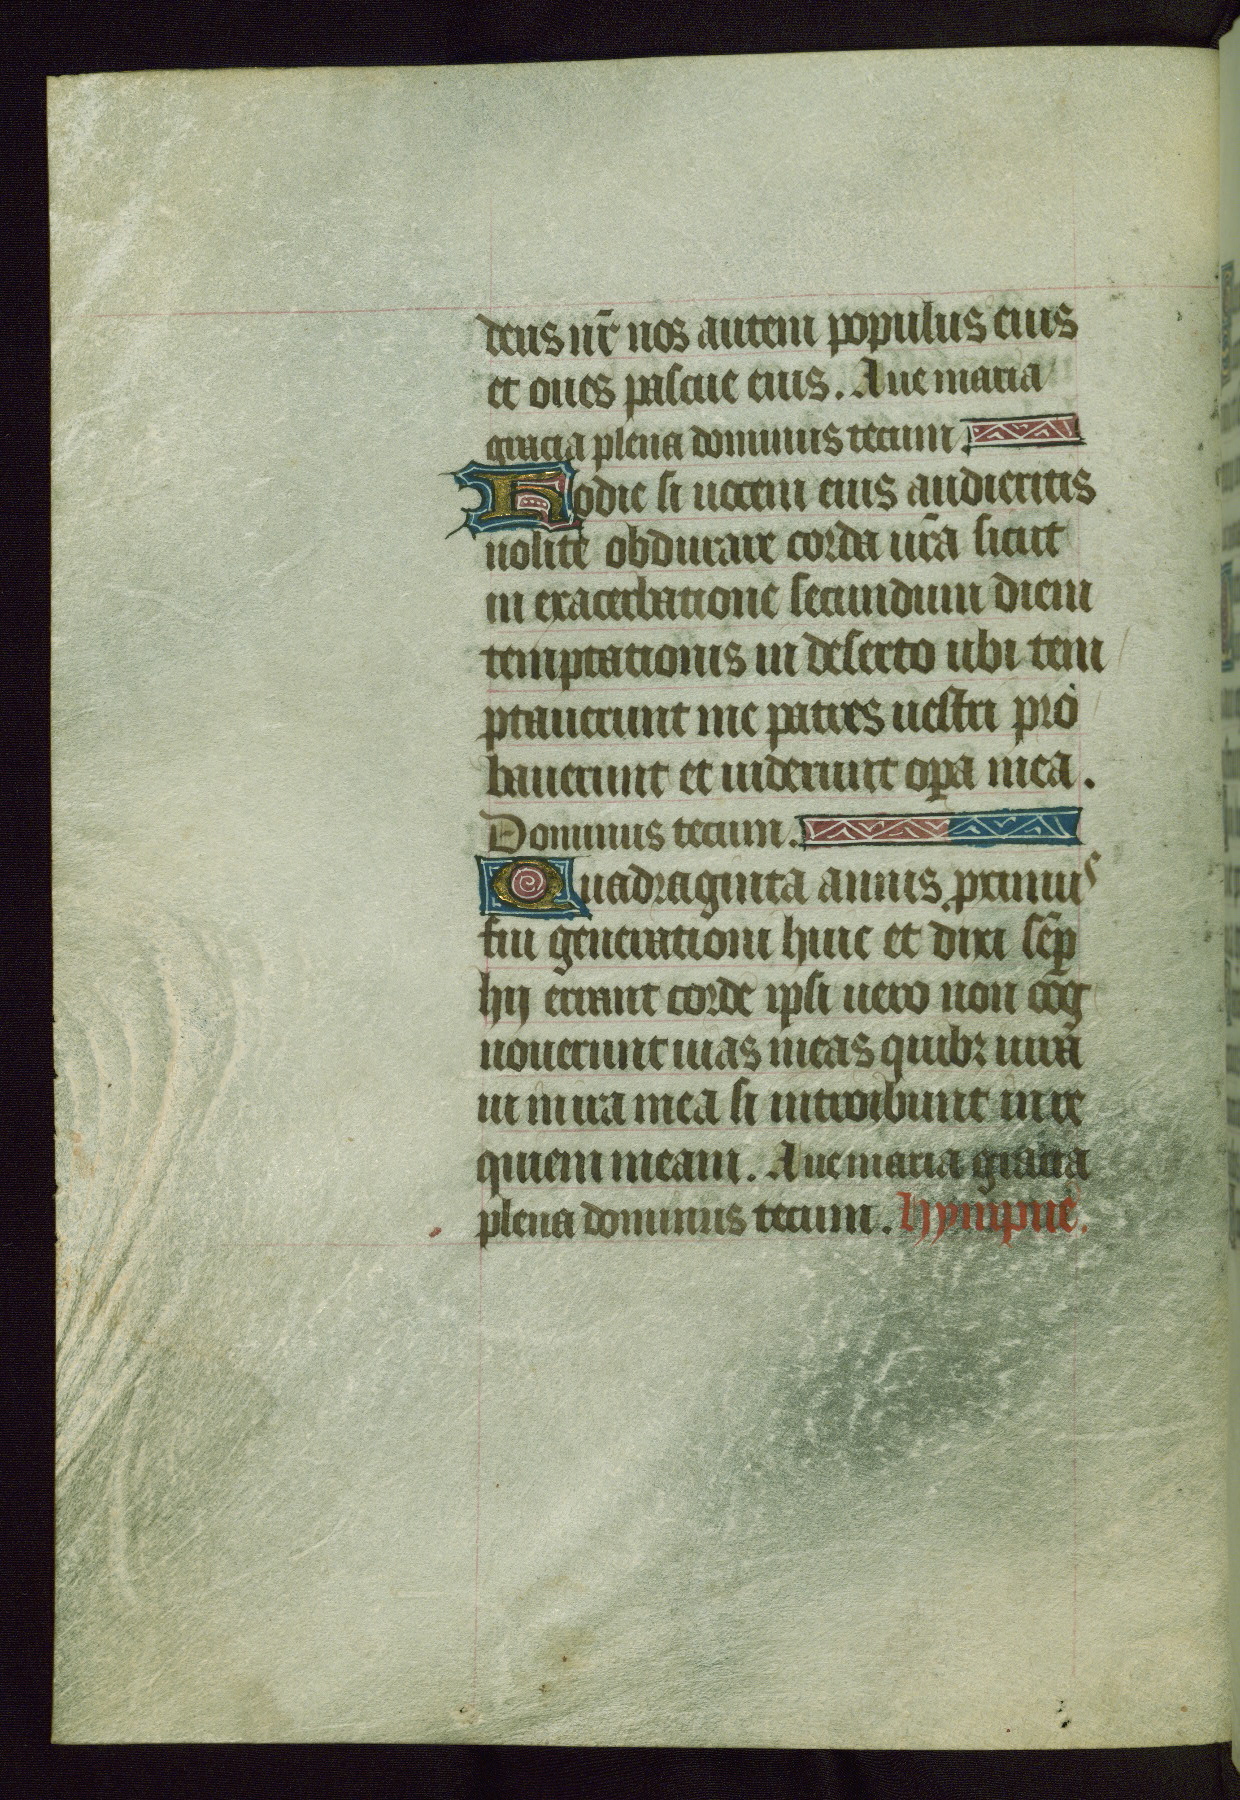 deus nr̄ nos autem populus eius
et oues pascue eius. Aue maria
gracia plena dominus tecum.
Hodie si uocem eius audieritis
nolite obdurare corda ur̄a sicut
in exacerbatione secundum diem
temptationis in deserto ubi tem
ptauerunt me patres uestri pro
bauerunt et uiderunt opa mea.
Dominus tecum.
Quadraginta annis proximus
fui generationi huic et dixi sēp
hij errant corde ipsi uero non cōg
nouerunt uias meas quibꝫ iurā
in in ira mea si introibunt in re
quiem meam. Aue maria gracia
plena dominus tecum. hympne.